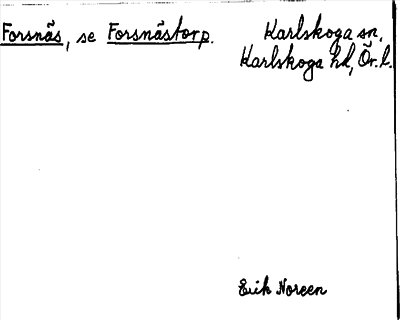 Forsnäs, se Forsnästorp. Karlskoga sn,
Karlskoga hd, Ör. l.
Erik Noreen